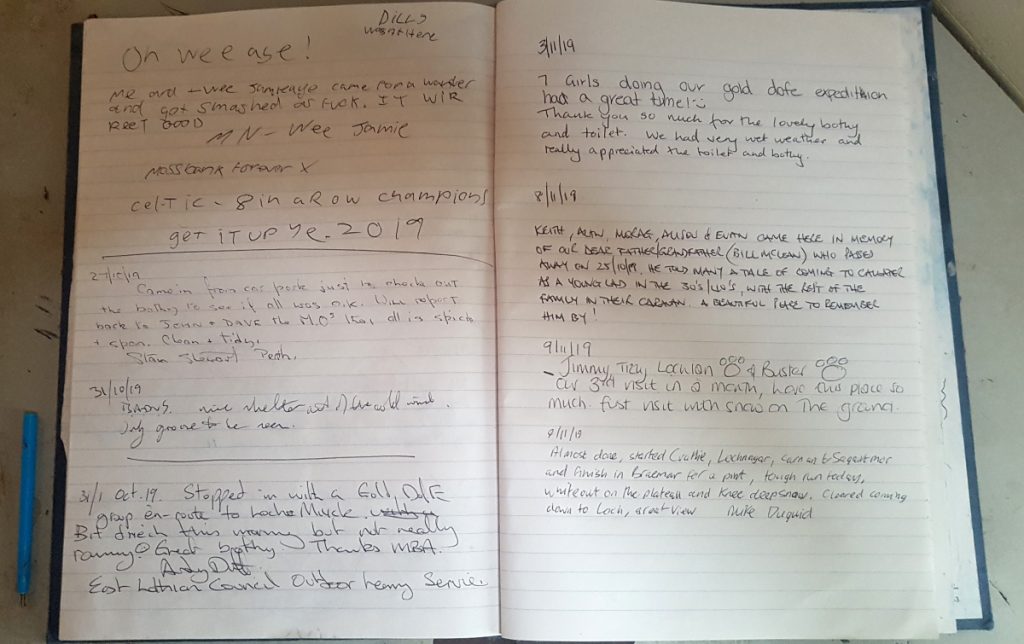 DILLS
wasn't Here
Oh wee aye!
Me and Wee came for a wander
and got smashed as fuck. IT WIR
REET GOOD
MN - Wee Jamie
Mossbank Forever X
CELTIC - 8 in a Row champions
get IT UP Ye. 2019
27/10/19
Came in from car park just to check out
the bothy to see if all was o.k. Will report
back to JOHN + DAVE the M.O's that all is spick
+ span. Clean + Tidy.
Stewart Perth.
31/10/19
nice shelter out of the cold wind.
Only grouse to be seen.
31/ Oct. 19. Stopped in with a Gold DofE
group en-route to Loch Muick.
Bit dreich this morning but not really
Great bothy. Thanks MBA.
Andy
East Lothian Council Outdoor Service.
3/11/19
7 Girls doing our gold dofe expedition
had a great time! :)
Thank you so much for the lovely bothy
and toilet. We had very wet weather and
really appreciated the toilet and bothy.
8/11/19
KEITH, ALAN, MORAG, ALISON & EVAN CAME HERE IN MEMORY
OF OUR DEAR FATHER/GRANDFATHER (BILL MCLEAN) WHO PASSED
AWAY ON 25/10/19. HE TOLD MANY A TALE OF COMING TO CALLATER
AS A YOUNG LAD IN THE 30'S/40'S, WITH THE REST OF THE
FAMILY IN THEIR CARAVAN. A BEAUTIFUL PLACE TO REMEMBER
HIM BY!
9/11/19
Jimmy, & Buster
Our 3rd visit in a month, love this place so
much. first visit with snow on the ground.
9/11/19
Almost done, started Crathie, Lochnagar, Carn an t-Sagairt mor
and finish in Braemar for a pint, tough run today,
whiteout on the plateau and knee deep snow. Cleared coming
down to Loch, great view Duguid